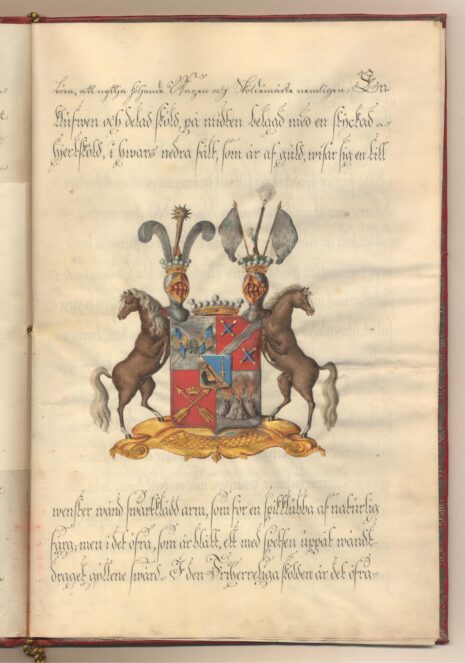 böra, att nyttja följande Wapen och Sköldemärke nemligen: En
klufwen och delad sköld, på midten belagd med en styckad
hjertsköld, i hwars nedra fält, som är af guld, wisar sig en till
wenster wänd swartklädd arm, som för en spikklubba af naturlig
färg; men i det öfra, som är blått, ett med spetsen uppåt wändt
draget gyllene swärd. I den Friherreliga skölden är det öfra